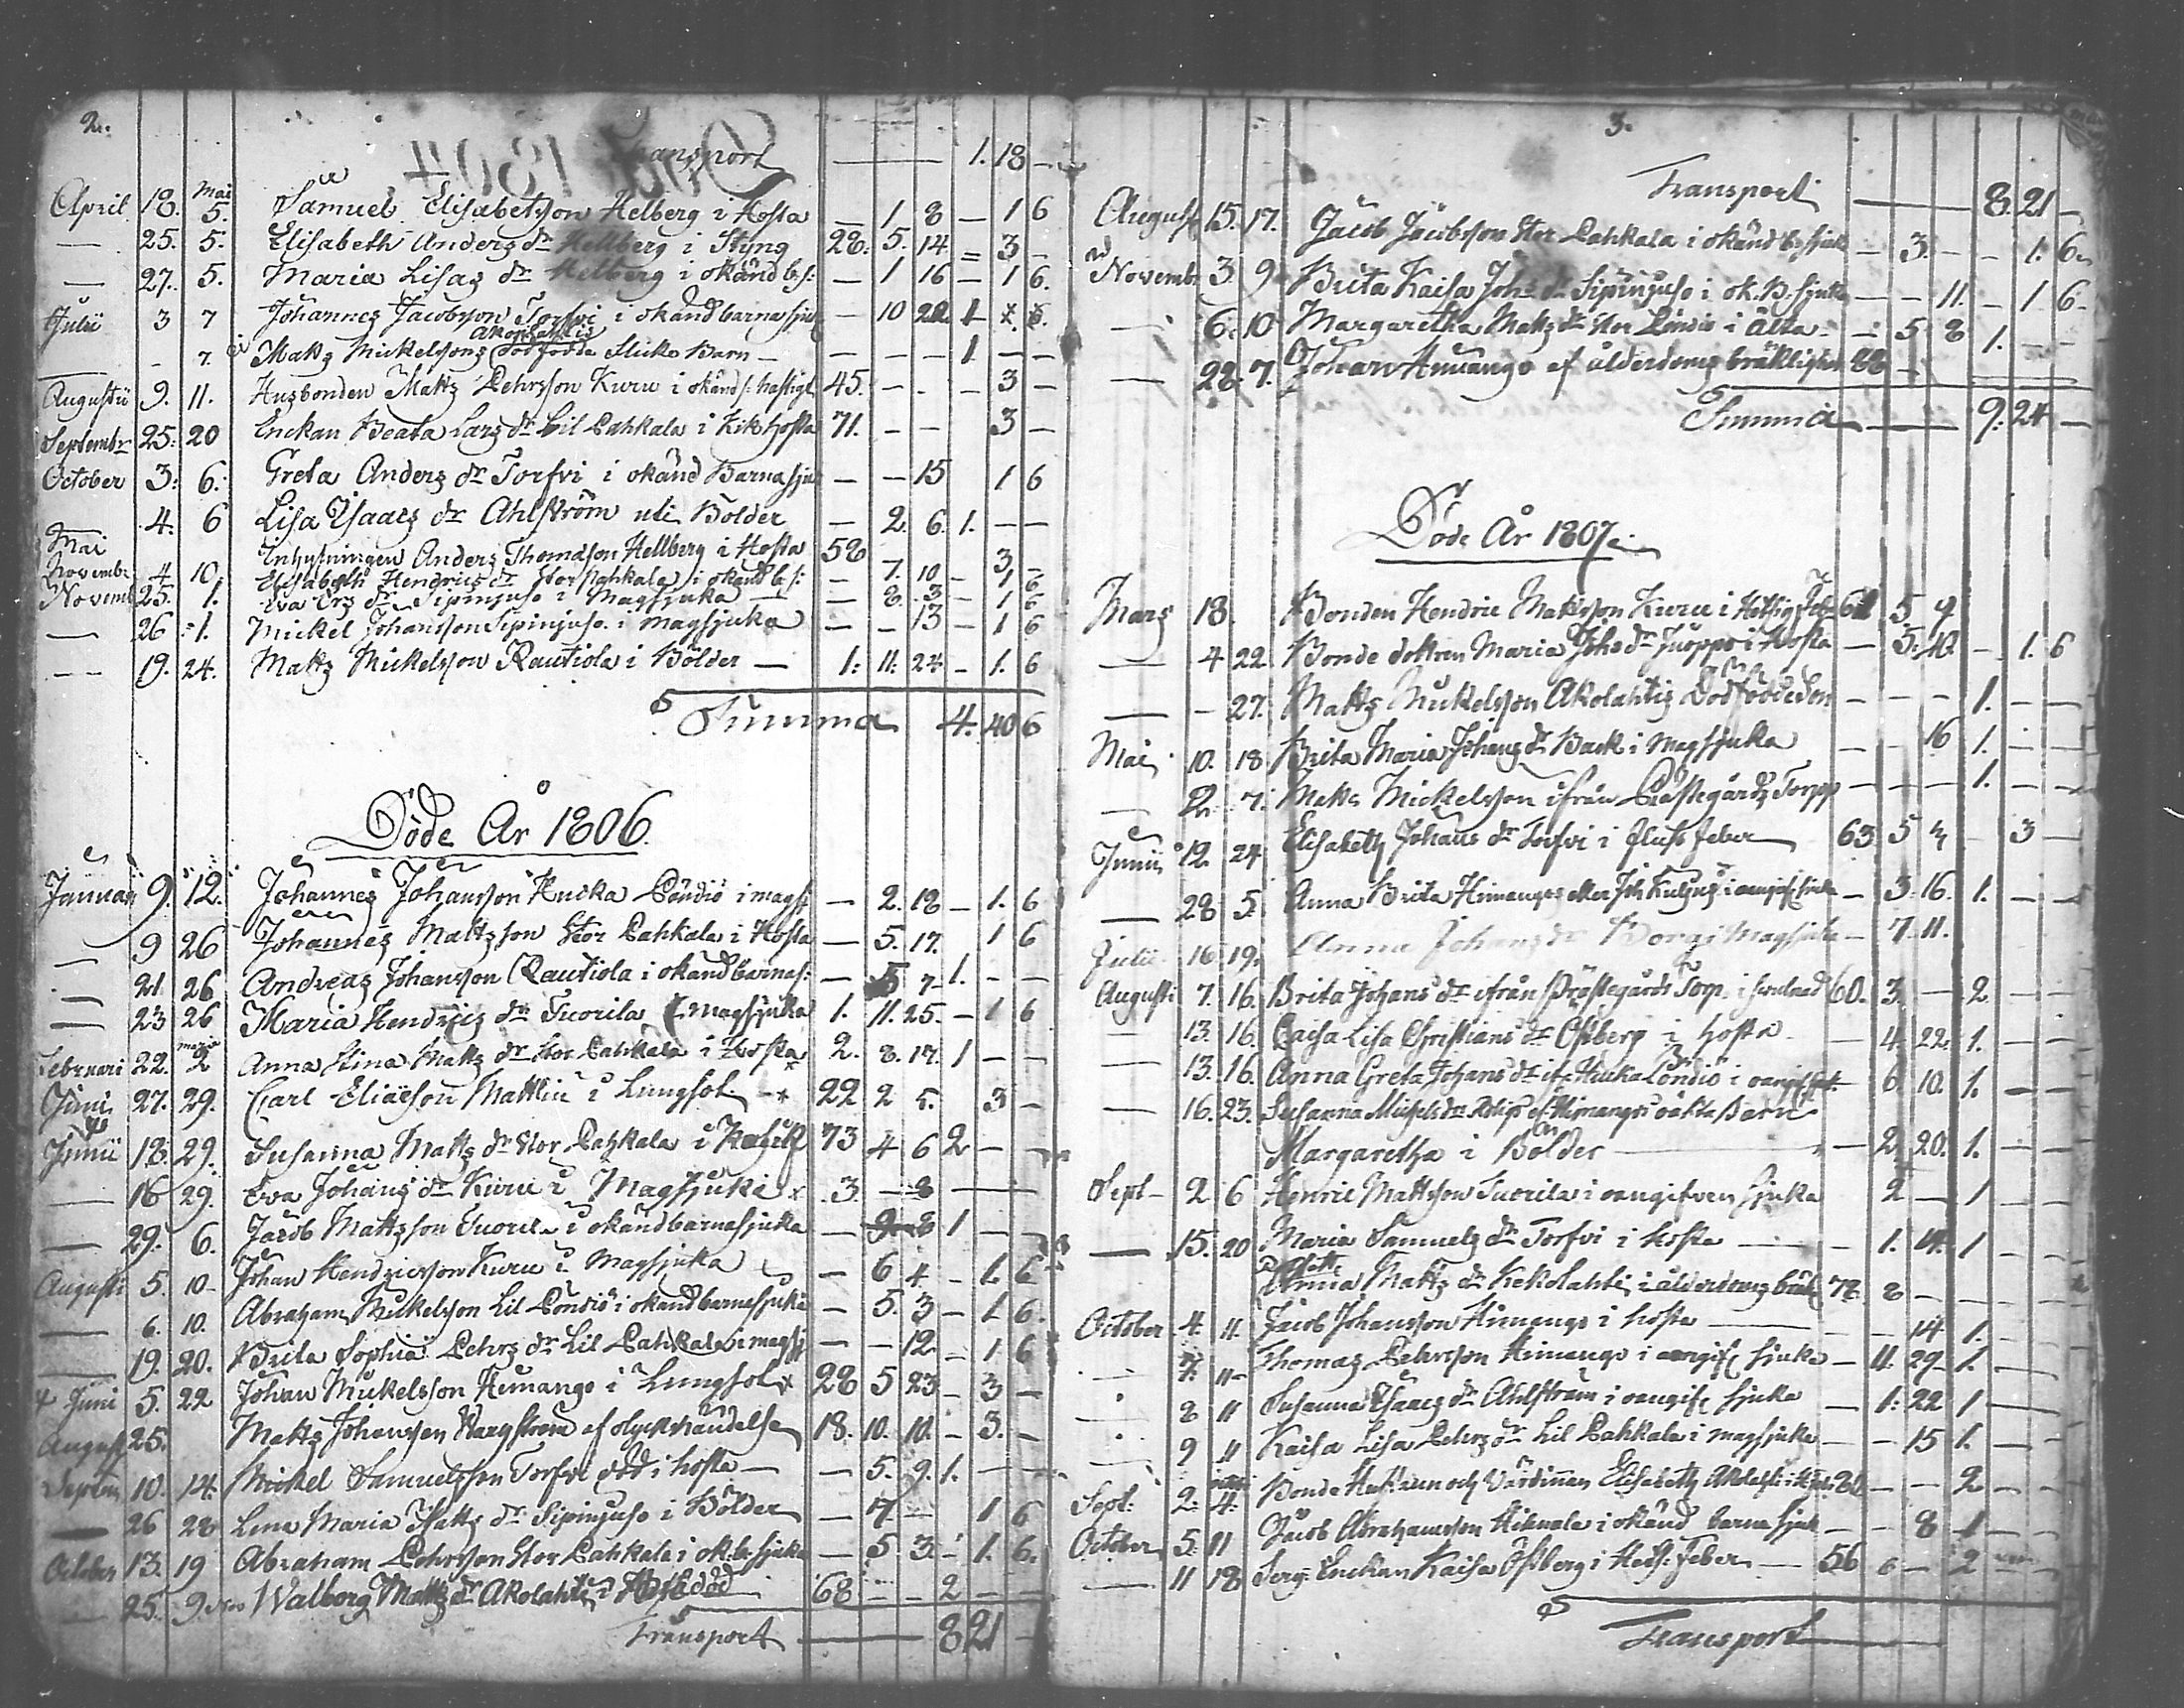 2.
Transport — 1. 18 —
April 18. Mai 5. Samuel Elisabetsson Helberg i Hosta — 1. 8 — 1 6
— 25. 5. Elisabeth Anders dr Hellberg i Styng 28. 5. 14 = 3 —
— 27. 5. Maria Lisas dr Helberg i okänd b:s: — 1 16 — 1 6.
Julii 3 7 Johannes Jacobsson Torfvi i okänd barnasjuk — 10 22. 1
Akolahtis
— 7. Matts Mickelssons dödfödde Flicke Barn — — — 1 — —
Augustii 9. 11. Husbonden Matts Pehrsson Kuru i okänd s: hastigt 45. — — 3 —
Septembr 25. 20 Enckan Beata Lars dr Lil Pahkala i Kikhosta 71. — — 3 —
October 3. 6. Greta Anders dr Torfvi i okänd Barnasjuk — — 15 1 6
— 4. 6 Lisa Isaacs dr Ahlström uti Bölder — 2. 6. 1. — —
Mai Inhysningen Anders Thomasson Hellberg i Hosta 58 3 —
Novembr 4 10. Elisabeth Hendrics dr Stor Pahkala i okänd b:s: — 7. 10 — 1 6
Novemb 25. 1. Eva Ers dr Sipinjuso i Magsjuka — 8. 3 — 1 6
— 26 1. Mickel Johansson Sipinjuso i magsjuka — — 13 — 1 6
— 19. 24. Matts Mickelsson Rautiola i Bölder — 1: 11: 24 — 1. 6
Summa 4. 40 6
Döde År 1806.
Januari 9. 12. Johannes Johansson Hucka Pöndiö i mags — 2. 18 — 1. 6
— 9 26 Johannes Mattsson Stor Pahkala i Hosta — 5. 17. 1 6
— 21 26 Andreas Johansson Rautiola i okänd barnas: — 5 7 1. — —
— 23 26 Maria Hendrics dr Tuorila i magsjuka 1. 11. 25. — 1 6
Februari 22. martii 2 Anna Stina Matts dr Stor Pahkala i Hosta 2. 8. 17. 1 — —
Juni 27. 29. Carl Eliæson Mattlin i Lungsot 22 2 5. 3 —
Junii 18. 29. Susanna Matts dr Stor Pahkala i 73 4 6 2 — —
— 16 29. Eva Johans dr Kuru i Magsjuka 3 — 8 —
— 29. 6. Jacob Mattsson Tuorila i okänd barnasjuka — 8 1 — —
Augusti 5. 10 Johan Hendricsson Kuru i Magsjuka — 6 4. — 1. 6
— 6. 10. Abraham Mickelsson Lil Pöndiö i okänd barnasjuka — 5. 3 — 1 6.
— 19. 20. Brita Sophia Pehrs dr Lil Pahkala i magsj — — 12 — 1 6
Juni 5. 22 Johan Mickelsson Himango i Lungsot 28 5 23 — 3 —
August 25. Matts Johansson af olyckshändelse 18. 10. 10. — 3. —
Septem 10. 14. Mickel Samuelsson Torfvi död i hosta — — 5. 9. 1. — —
— 26 28 Lena Maria Matts dr Sipinjuso i Bölder — 7. — 1 6
October 13. 19 Abraham Pehrsson Stor Pahkala i ok: b: sjuka — 5 3. — 1. 6.
— 25. 9 Walborg Matts dr Akolahti 68 — — 2 —
Transport — 8 21
3.
Transport — 8. 21 —
August 15. 17. Jacob Jacobsson Stor Pahkala i okänd b: sjuk — 3. — — 1. 6
Novemb 3 9 Brita Kaisa Johs dr Sipinjuso i ok. B. sjuka — — 11. — 1 6
— 6. 10 Margaretha Matts dr Stor Pöndiö i — 5 8 1. — —
— 28. 7. Johan Himango af ålderdoms bräklighet 88 —
Summa — 9. 24 —
Döde År 1807.
Mars 18. Bonden Hendric Mattsson Kuru i Hetsig Feber 61 5 9
— 4 22 Bonde dottren Maria Johs dr Juoppo i Hosta — 5. 10. — 1. 6
— — 27. Matts Mickelsson Akolahtis Dödfödde Son — — — 1. — —
Mai 10. 18 Brita Maria Johans dr Back i magsjuka — — 16 1. — —
— 2. 7. Matts Mickelsson ifrån Prästegårds Torpp — — — 1. —
Junii 12. 24 Elisabeth Johans dr Torfvi i Fluss feber 63 5 — 3 —
— 28 5. Anna Brita Himangos eller Joh i oangifven sjuka — 3. 16. 1. — —
Julii 16 19. Anna Johans dr Borg i Magsjuka — 7. 11.
Augusti 7. 16. Brita Johans dr ifrån Prästegårds Torp i 60. 3. — 2. — —
— 13. 16. Caisa Lisa Christians dr Ostberg i hosta — 4. 22. 1. — —
— 13. 16. Anna Greta Johans dr Hucka Pöndiö i oangif — 6. 10. 1. — —
— 16. 23. Susanna Michels dr af Himangos oäkta Barn
Margaretha i Bölder — 2. 20. 1. — —
Sept 2 6 Henric Mattsson Tuorila i oangifven sjuka 2 — 1 — —
— 15. 20 Maria Samuels dr Torfvi i hosta — 1. 14. 1 — —
Anna Matts dr Kekolahti i ålderdoms bräk 78. 8 — —
October 4. 11. Jacob Johansson Himango i hosta — — 14 1. —
— 7. 11 Thomas Pehrsson Himango i oangif sjuka — 11. 29 1. —
— 8 11 Susanna Isaacs dr Ahlström i oangif sjuka — 1. 22 1 —
— 9 11 Kaisa Lisa Pehrs dr Lil Pahkala i magsjuka — — 15 1. —
Sept: 2. 4. Bonde Hustrun och Värdinnan Elisabeth Akolahti — — 2 — —
October 5. 11 Jacob Abrahamsson Hihnala i okänd barnasjuk — — 8 1 — —
— 11 18 Serg: Enckan Kaisa Östberg i Hets: Feber — 56 6 — 2
Transport —